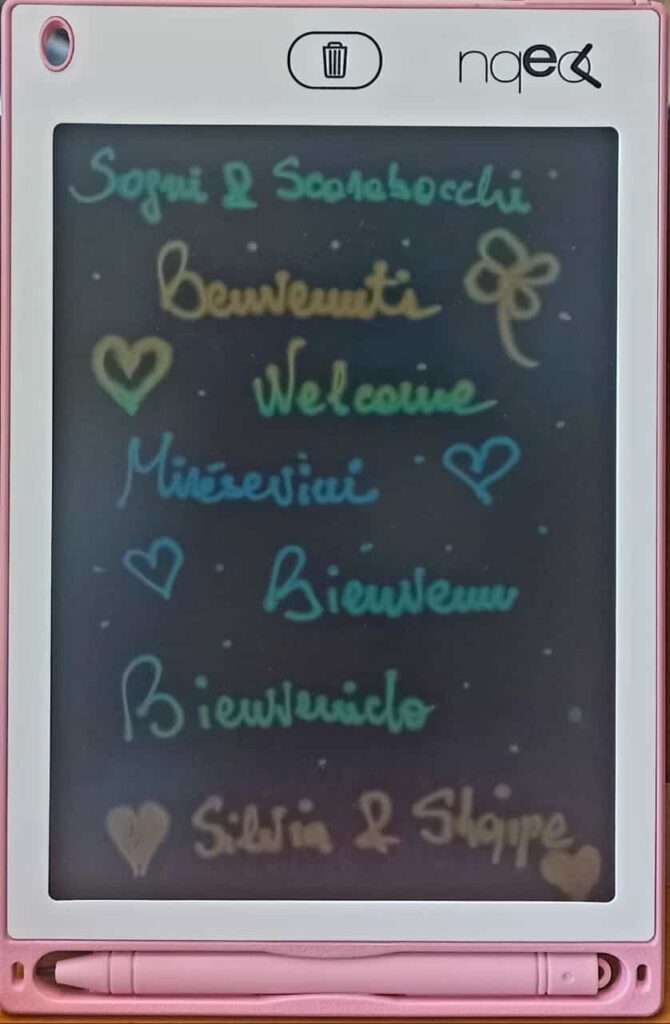 nqeo
Sogni & Scarabocchi
Benvenuti
Welcome
Mirësevini
Bienvenu
Bienvenido
Silvia & Shqipe